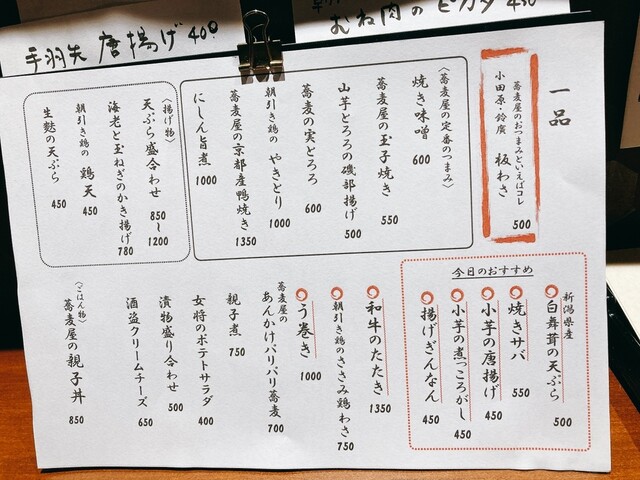 手羽先 唐揚げ 400
むね肉のピカタ 450
一品
蕎麦屋のおつまみといえばコレ
小田原・鈴廣 板わさ 500
〈蕎麦屋の定番のつまみ〉
焼き味噌 600
蕎麦屋の玉子焼き 550
山芋とろろの磯部揚げ 500
蕎麦の実とろろ 600
朝引き鶏の やきとり 1000
蕎麦屋の京都産鴨焼き 1350
にしん旨煮 1000
〈揚げ物〉
天ぷら盛合わせ 850〜1200
海老と玉ねぎのかき揚げ 780
朝引き鶏の 鶏天 450
生麩の天ぷら 450
今日のおすすめ
新潟県産
白舞茸の天ぷら 500
焼きサバ 550
小芋の唐揚げ 450
小芋の煮っころがし 450
揚げぎんなん 450
和牛のたたき 1350
朝引き鶏のささみ鶏わさ 750
う巻き 1000
蕎麦屋の
あんかけパリパリ蕎麦 700
親子煮 750
女将のポテトサラダ 400
漬物盛り合わせ 500
酒盗クリームチーズ 650
〈ごはん物〉
蕎麦屋の親子丼 850